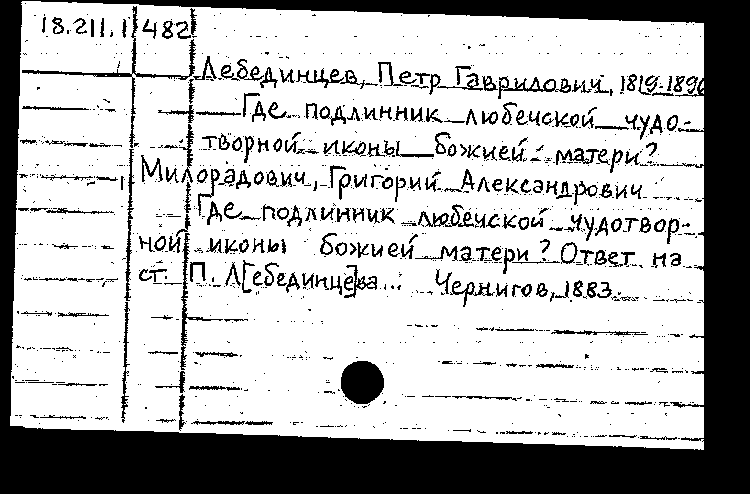 18.211.1 482
Лебединцев, Петр Гаврилович, 1819-1896
Где подлинник любечской чудо-
творной иконы божией матери?
Милорадович, Григорий Александрович
Где подлинник любечской чудотвор-
ной иконы божией матери? Ответ на
ст. П. Л[ебединце]ва... Чернигов, 1883.